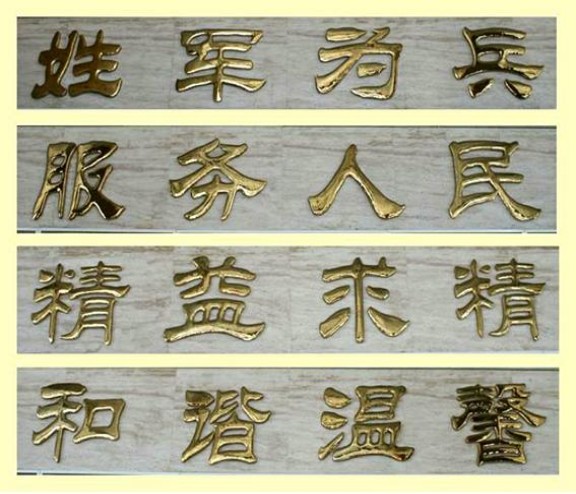 姓军为兵
服务人民
精益求精
和谐温馨